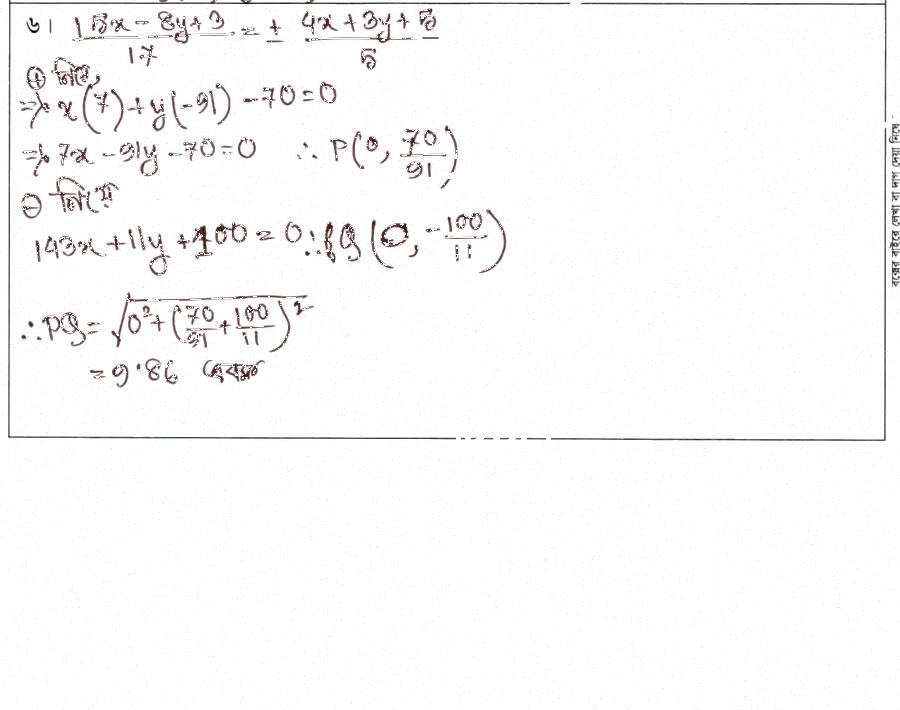 ৬। (15x - 8y + 3)/17 = ± (4x + 3y + 5)/5
⊕ নিয়ে,
⇒ x(7) + y(-91) - 70 = 0
⇒ 7x - 91y - 70 = 0 ∴ P(0, 70/91)
⊖ নিয়ে
143x + 11y + 100 = 0 ∴ Q(0, -100/11)
∴ PQ = √(0² + (70/91 + 100/11)²)
= 9.86 একক
বক্সের বাইরে লেখা বা দাগ দেয়া নিষে